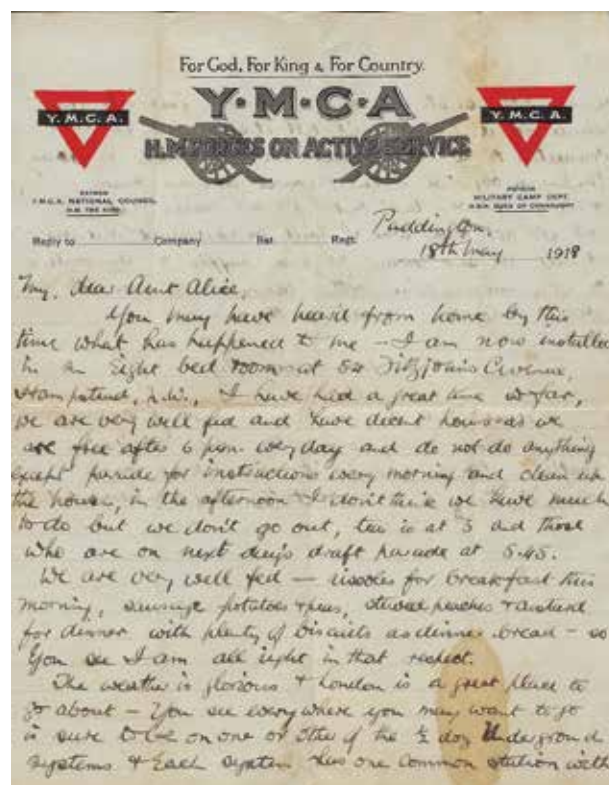 For God, For King & For Country.
Y·M·C·A
Y.M.C.A.
Y.M.C.A.
H.M. FORCES ON ACTIVE SERVICE
PATRON
Y.M.C.A. NATIONAL COUNCIL
H.M. THE KING
PATRON
MILITARY CAMP DEPT.
H.R.H. DUKE OF CONNAUGHT
Reply to Company Bat. Regt.
Paddington,
18th May 1918
My, dear Aunt Alice,
You may have heard from home by this
time what has happened to me – I am now installed
in an eight bed room at 54 Fitzjohns Avenue,
Hampstead, N.W., I have had a great time so far,
we are very well fed and have decent hours as we
are free after 6 p.m. every day and do not do anything
except parade for instructions every morning and clean up
the house, in the afternoon I don't think we have much
to do but we don't go out, tea is at 5 and those
who are on next day's draft parade at 5.45.
We are very well fed – rissoles for breakfast this
morning, sausage potatoes & peas, stewed peaches & custard
for dinner with plenty of biscuits as dinner bread – so
you see I am all right in that respect.
The weather is glorious & London is a great place to
go about – You see everywhere you may want to go
is sure to be on one or other of the ½ doz Underground
systems & each system has one common station with